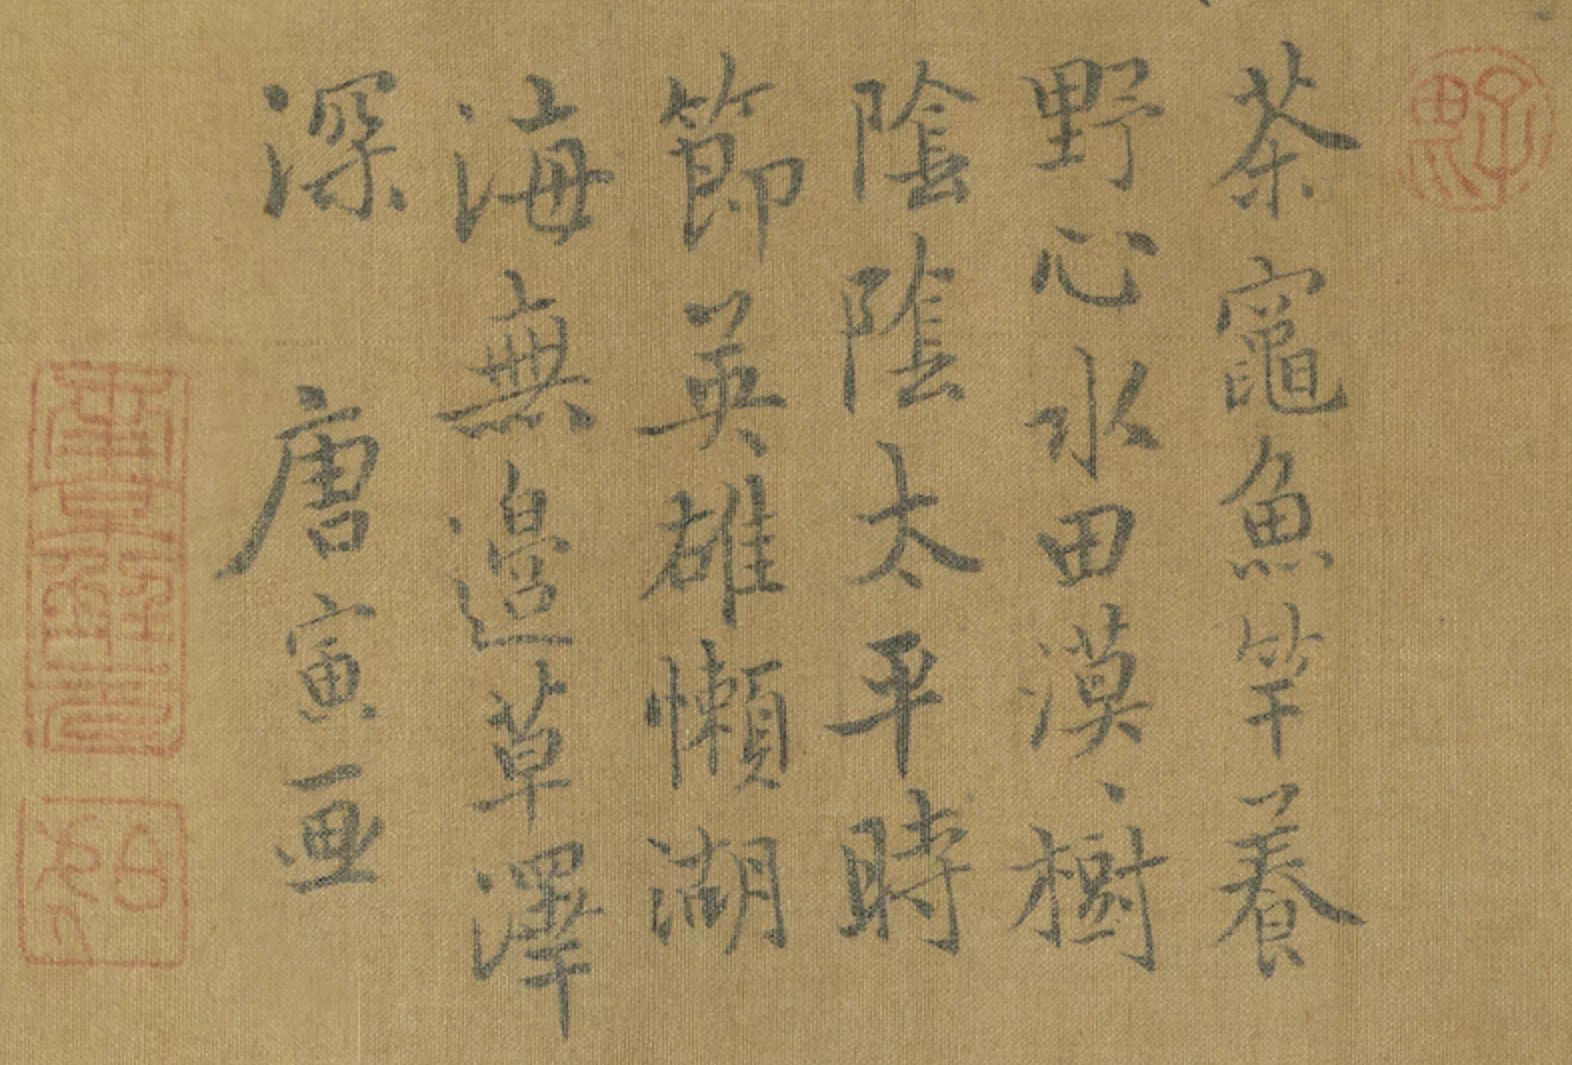 茶竈魚竿養
野心水田漠、樹
陰陰太平時
節英雄懶湖
海無邉草澤
深 唐寅画